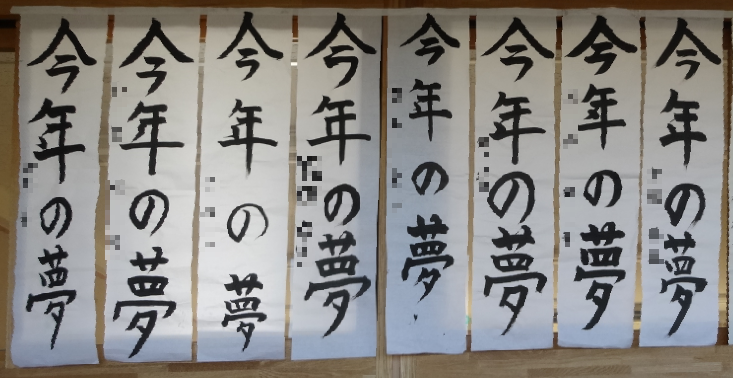 今年の夢
今年の夢
今年の夢
今年の夢
今年の夢
今年の夢
今年の夢
今年の夢